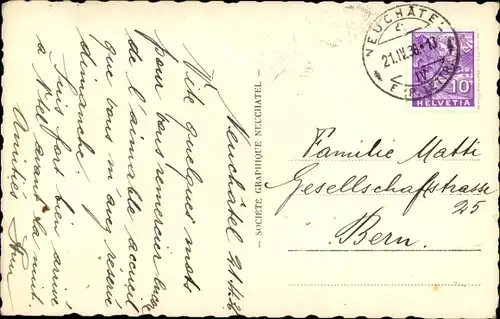 Neuchâtel 21.4.36
Vite quelques mots
pour vous remercier encore
de l'aimable accueil
que vous m'avez réservé
dimanche.
Suis fort bien arrivé
à N'tel avant la nuit.
Amitiés
— SOCIÉTÉ GRAPHIQUE NEUCHATEL —
NEUCHÂTEL
21.IV.36.-17
IV
10
HELVETIA
Familie Matti
Gesellschaftstrasse
25
Bern.